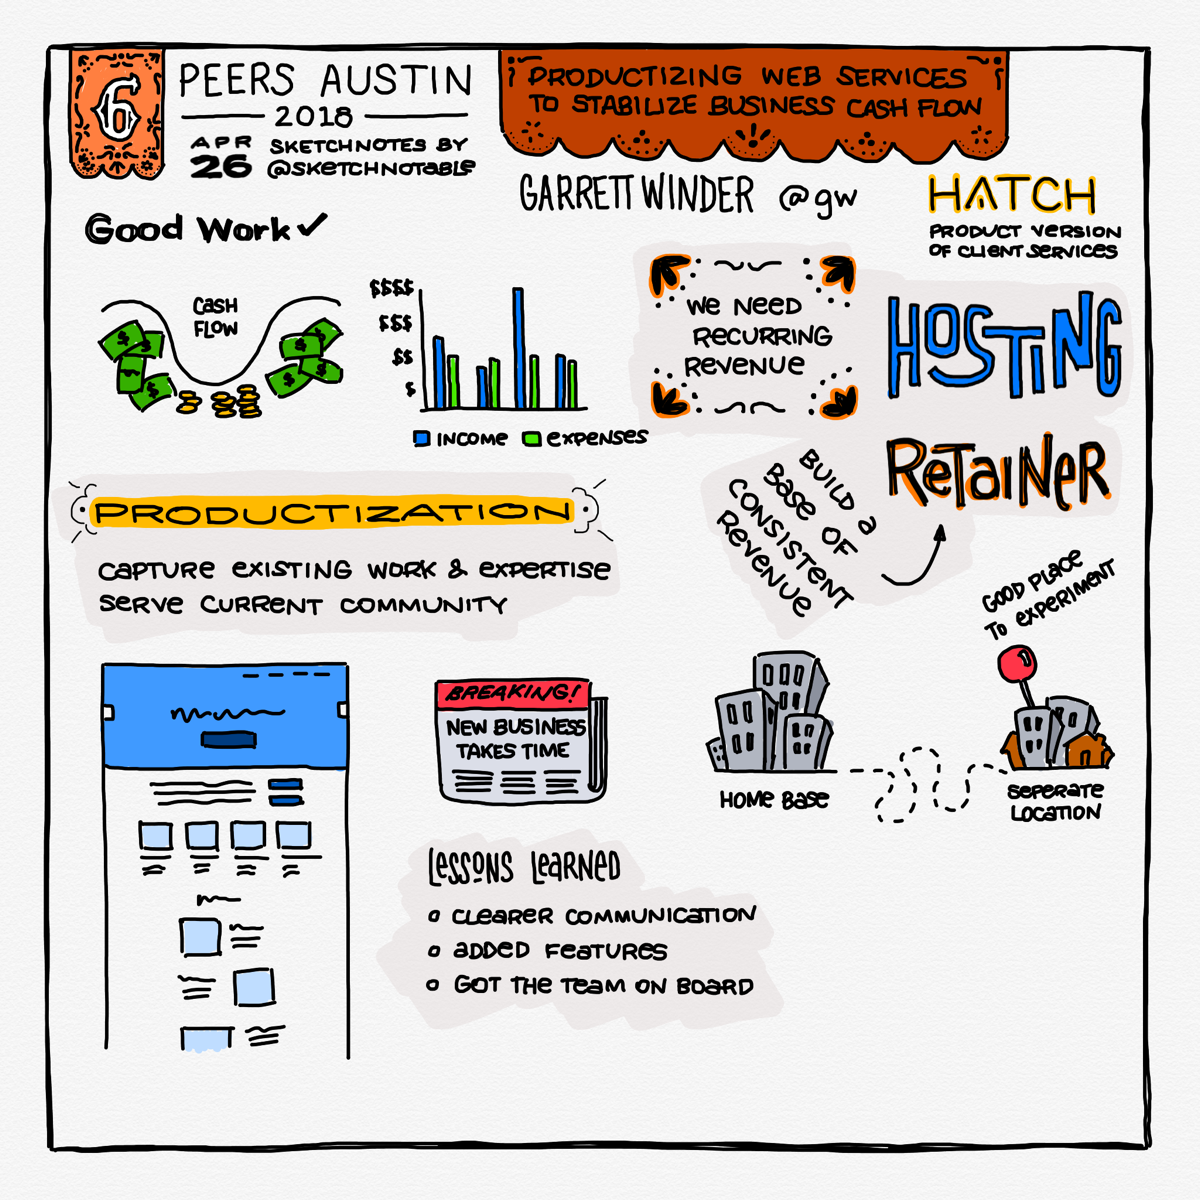 6
PEERS AUSTIN
2018
APR
26
SKETCHNOTES BY
@SKETCHNOTABLE
PRODUCTIZING WEB SERVICES
TO STABILIZE BUSINESS CASH FLOW
GARRETT WINDER @gw
HATCH
PRODUCT VERSION
OF CLIENT SERVICES
Good Work ✓
CASH
FLOW
$ $ $ $
$$$$
$$$
$$
$
INCOME EXPENSES
WE NEED
RECURRING
REVENUE
HOSTING
RETAINER
BUILD A
BASE OF
CONSISTENT
REVENUE
PRODUCTIZATION
CAPTURE EXISTING WORK & EXPERTISE
SERVE CURRENT COMMUNITY
GOOD PLACE
TO EXPERIMENT
BREAKING!
NEW BUSINESS
TAKES TIME
HOME BASE
SEPERATE
LOCATION
LESSONS LEARNED
o CLEARER COMMUNICATION
o ADDED FEATURES
o GOT THE TEAM ON BOARD